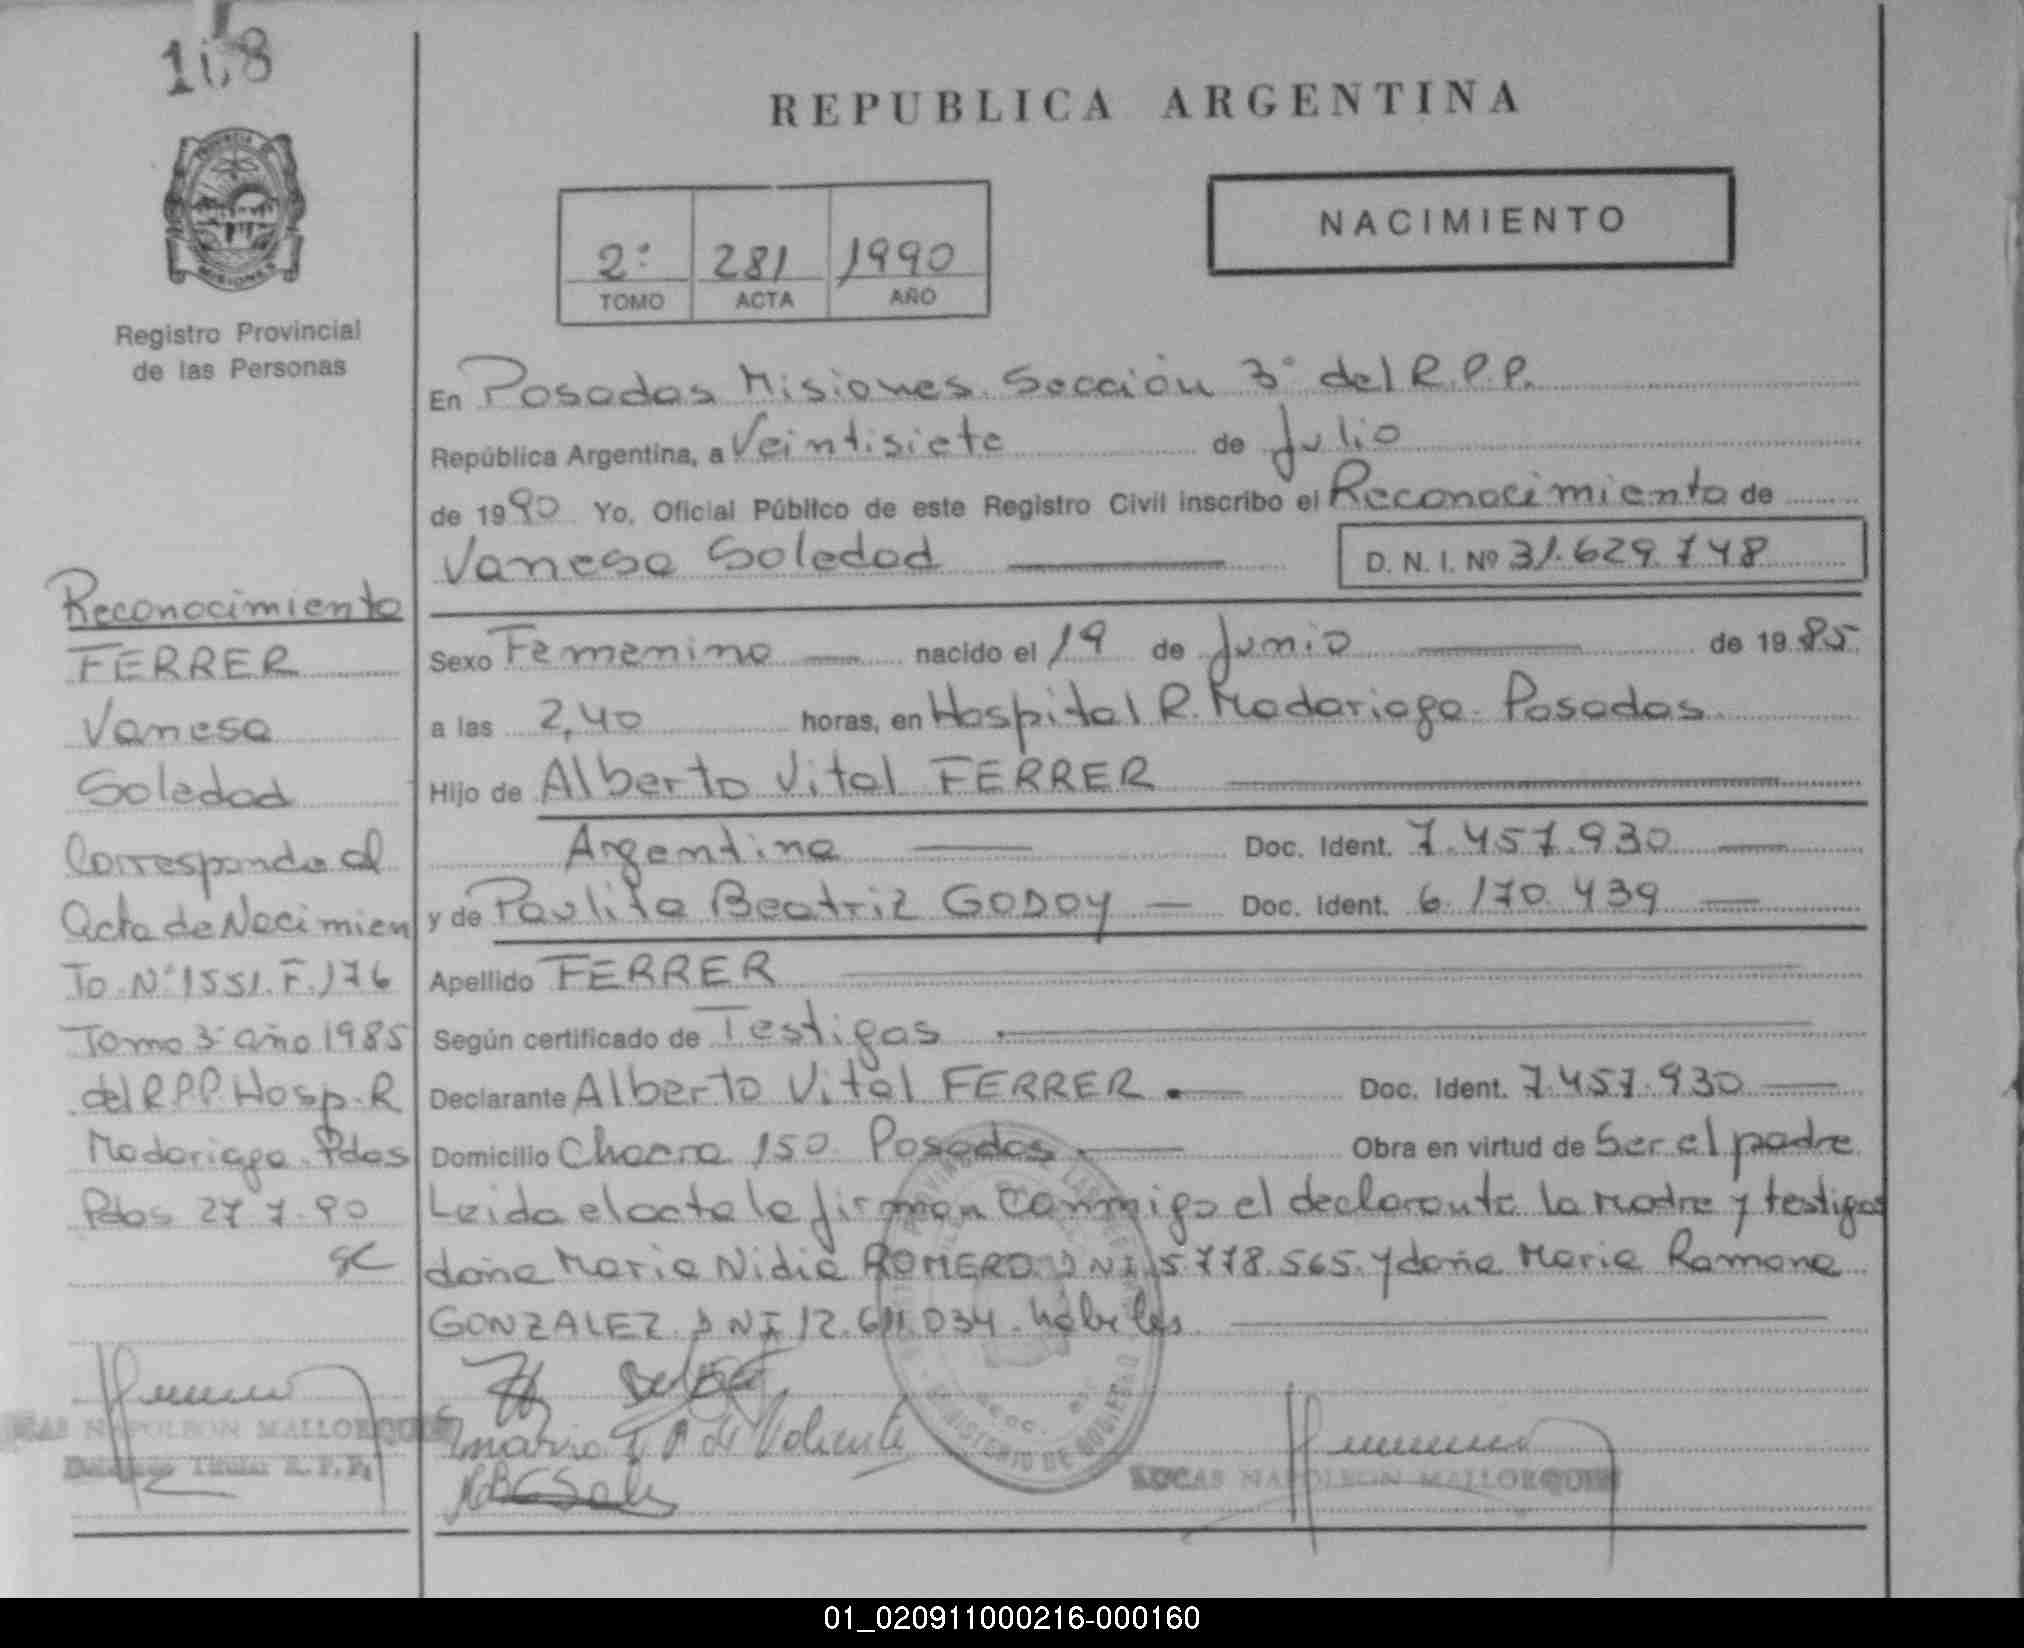 118
REPUBLICA ARGENTINA
NACIMIENTO
2º 281 1990
TOMO ACTA AÑO
PROVINCIA
MISIONES
Registro Provincial
de las Personas
En Posadas Misiones. Sección 3º del R.P.P.
República Argentina, a Veintisiete de Julio
de 1990 Yo, Oficial Público de este Registro Civil inscribo el Reconocimiento de
Vanesa Soledad D. N. I. Nº 31.629.748
Sexo Femenino nacido el 19 de Junio de 1985
a las 2,40 horas, en Hospital R. Madariaga. Posadas
Hijo de Alberto Vital FERRER
Argentina Doc. Ident. 7.457.930
y de Paulita Beatriz GODOY Doc. Ident. 6.170.439
Apellido FERRER
Según certificado de Testigos
Declarante Alberto Vital FERRER. Doc. Ident. 7.457.930
Domicilio Chacra 150 Posadas Obra en virtud de Ser el padre
Leida el acta la firman conmigo el declarante la Madre y testigos
doña Maria Nidia ROMERO DNI 5.778.565. y doña Maria Ramona
GONZALEZ. DNI 12.611.034. habiles
LUCAS NAPOLEON MALLORQUIN
Reconocimiento
FERRER
Vanesa
Soledad
Corresponde al
acta de Nacimien
To. Nº 1551. F. 176
Tomo 3º año 1985
del R.P.P. Hosp. R
Madariaga. Pdas
Pdas 27 7.90
LUCAS NAPOLEON MALLORQUIN
Titular R.P.P.
MINISTERIO DE GOBIERNO
01_020911000216-000160